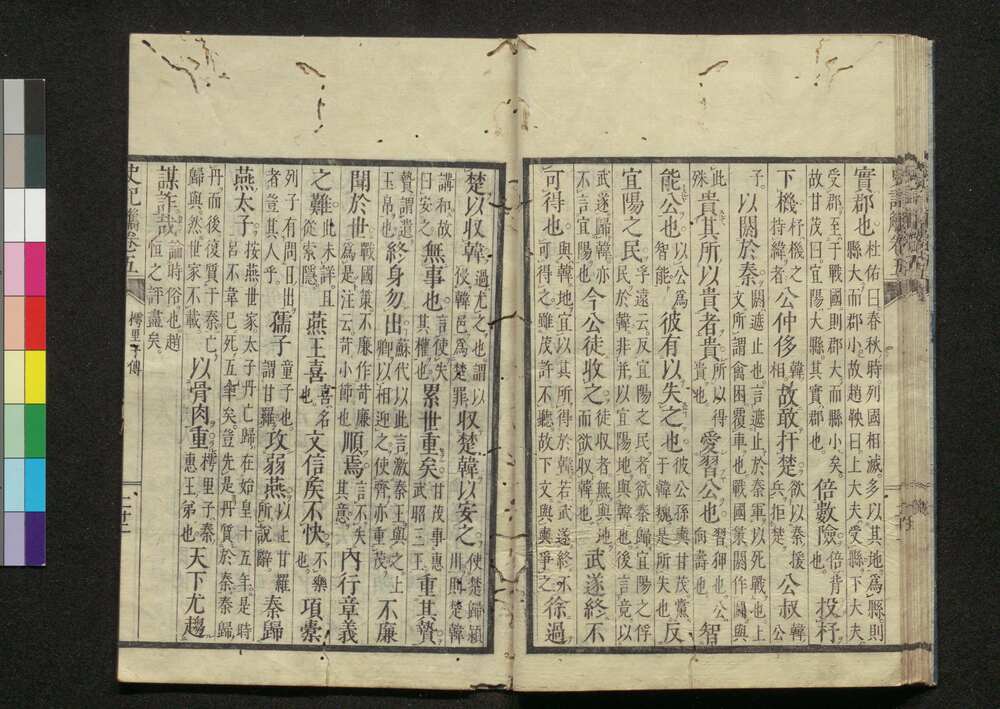 實郡也 杜佑曰春秋時列國相滅多以其地爲縣則縣大而郡小故趙鞅曰上大夫受縣下大夫
受郡至于戰國則郡大而縣小矣故甘茂曰宜陽大縣其實郡也 倍數險 倍背也 投杼
下機 杼機之持緯者 公仲侈 韓相 故敢扞楚 欲以秦援兵拒楚 公叔 韓公
子 以閼於秦 閼遮止也言遮止於秦軍以死戰也上文所謂禽困覆車也戰國策閼作 與
此殊 貴其所以貴者貴 所以得貴也 愛習公也 習狎也公向壽也 智
能公也 以公爲智能 彼有以失之也 彼公孫奭甘茂黨於韓魏是所失也 反
宜陽之民 孚遠云反宜陽之民者欲秦歸宜陽之俘民於韓非并以宜陽地與韓也後言竟以
武遂歸韓亦不言宜陽也 今公徒收之 徒收者無與而欲收韓也 武遂終不
可得也 與韓地宜以其所得於韓若武遂終不可得之雖茂許不聽故下文與奭爭之 徐過
楚以收韓 過尤之也謂以侵韓邑爲楚罪 收楚韓以安之 使楚歸潁川則楚韓
講和故曰安之 無事也 言使失其權也 累世重矣 甘茂事惠武昭三王 重其贄
贄謂遣玉帛也 終身勿出 蘇代以此言激秦王與之上卿以相迎之使齊亦重茂 不廉
聞於世 戰國策不廉作苛廉爲是注云苛小節也 順焉 言不失其意 內行章義
之難 此未詳且從索隱 燕王喜 喜名也 文信矦不快 不樂也 項橐
列子有問日出者豈其人乎 孺子 童子也謂甘羅 攻弱燕 以上甘羅所說辭 秦歸
燕太子 按燕世家太子丹亡歸在始皇十五年是時呂不韋已死五年矣豈先是丹質於秦秦歸
丹而後復質于秦亡歸與然世家不載 以骨肉重 樗里子秦惠王弟也 天下尤趨
謀詐哉 論時俗也趙恒之評盡矣
史記 卷五 樗里子傳